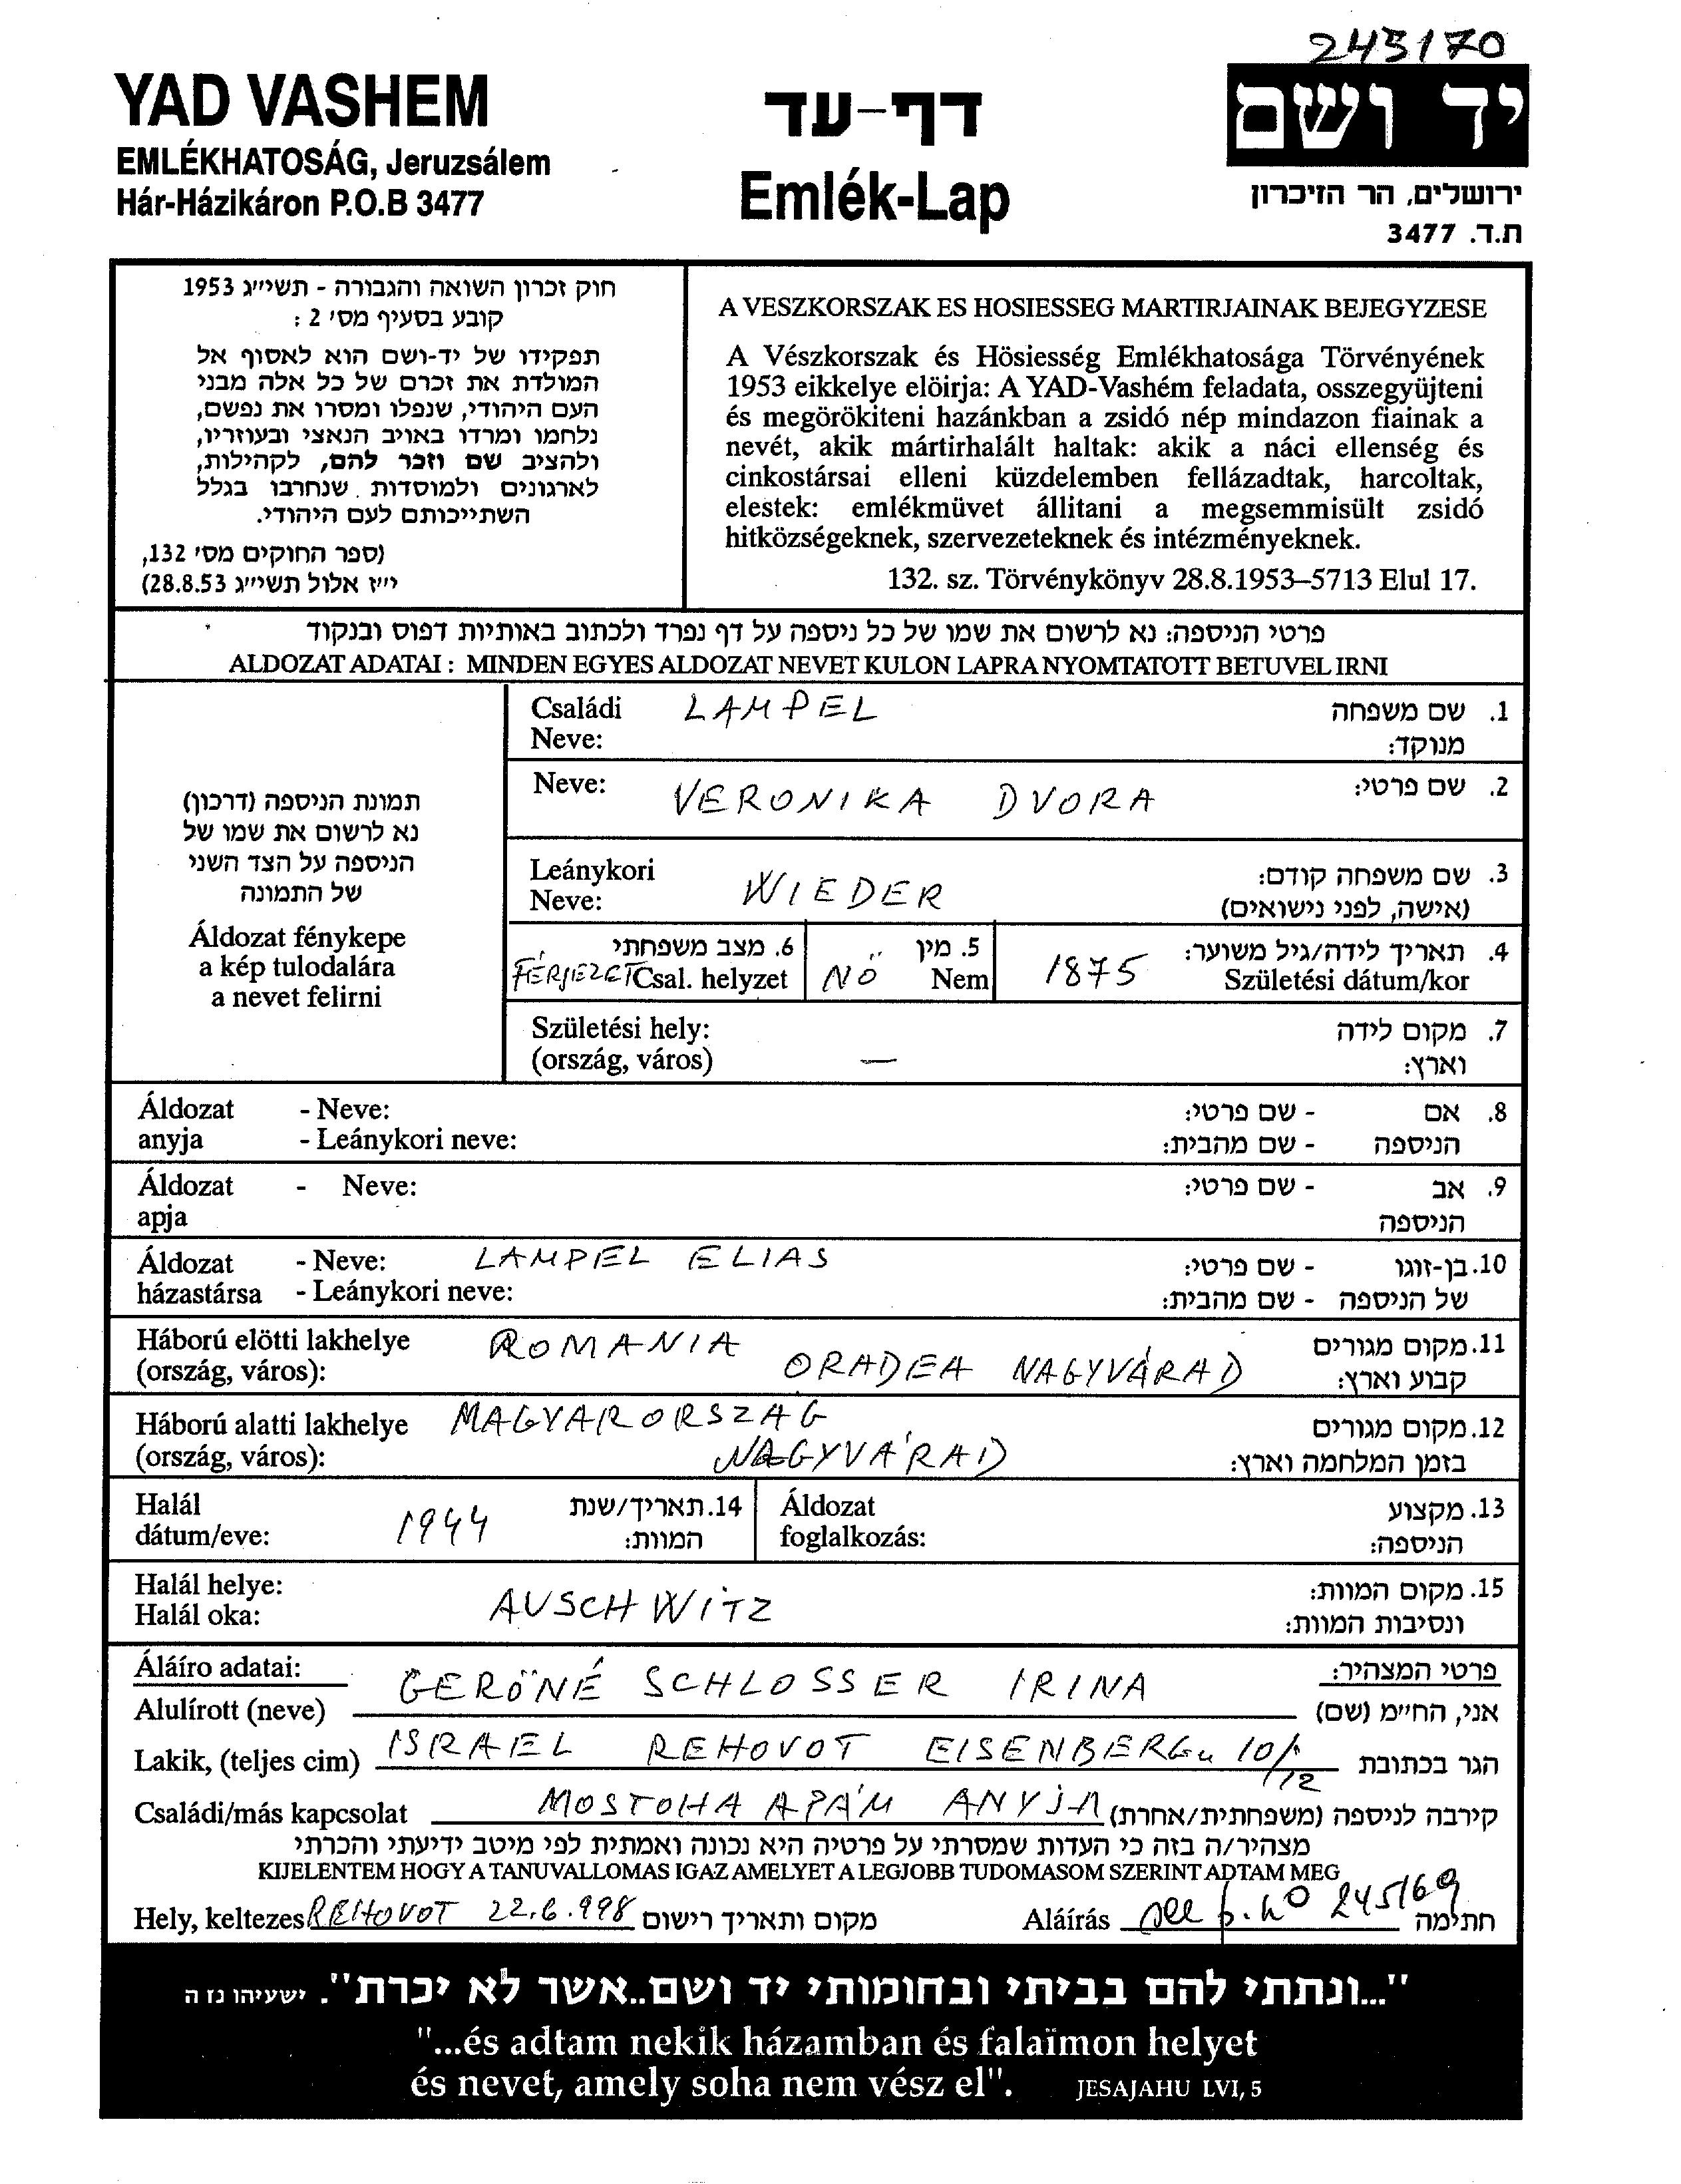 245170
YAD VASHEM
EMLÉKHATOSÁG, Jeruzsálem
Hár-Házikáron P.O.B 3477
דף-עד
Emlék-Lap
יד ושם
ירושלים, הר הזיכרון
ת.ד. 3477
חוק זכרון השואה והגבורה - תשי״ג 1953
קובע בסעיף מס׳ 2 :
תפקידו של יד-ושם הוא לאסוף אל
המולדת את זכרם של כל אלה מבני
העם היהודי, שנפלו ומסרו את נפשם,
נלחמו ומרדו באויב הנאצי ובעוזריו,
ולהציב שם וזכר להם, לקהילות,
לארגונים ולמוסדות שנחרבו בגלל
השתייכותם לעם היהודי.
(ספר החוקים מס׳ 132,
י״ז אלול תשי״ג 28.8.53)
A VESZKORSZAK ES HOSIESSEG MARTIRJAINAK BEJEGYZESE
A Vészkorszak és Hösiesség Emlékhatosága Törvényének
1953 eikkelye elöirja: A YAD-Vashém feladata, osszegyüjteni
és megörökiteni hazánkban a zsidó nép mindazon fiainak a
nevét, akik mártirhalált haltak: akik a náci ellenség és
cinkostársai elleni küzdelemben fellázadtak, harcoltak,
elestek: emlékmüvet állitani a megsemmisült zsidó
hitközségeknek, szervezeteknek és intézményeknek.
132. sz. Törvénykönyv 28.8.1953–5713 Elul 17.
פרטי הניספה: נא לרשום את שמו של כל ניספה על דף נפרד ולכתוב באותיות דפוס ובנקוד
ALDOZAT ADATAI : MINDEN EGYES ALDOZAT NEVET KULON LAPRA NYOMTATOTT BETUVEL IRNI
תמונת הניספה (דרכון)
נא לרשום את שמו של
הניספה על הצד השני
של התמונה
Áldozat fénykepe
a kép tulodalára
a nevet felirni
Családi LAMPEL 1. שם משפחה
Neve: מנוקד:
Neve: VERONIKA DVORA 2. שם פרטי:
Leánykori WIEDER 3. שם משפחה קודם:
Neve: (אישה, לפני נישואים)
6. מצב משפחתי 5. מין 4. תאריך לידה/גיל משוער:
FÉRJEZET Csal. helyzet NÖ Nem 1875 Születési dátum/kor
Születési hely: 7. מקום לידה
(ország, város) — וארץ:
Áldozat - Neve: - שם פרטי: 8. אם
anyja - Leánykori neve: - שם מהבית: הניספה
Áldozat - Neve: - שם פרטי: 9. אב
apja הניספה
Áldozat - Neve: LAMPEL ELIAS - שם פרטי: 10. בן-זוגו
házastársa - Leánykori neve: - שם מהבית: של הניספה
Háború elötti lakhelye ROMANIA 11. מקום מגורים
(ország, város): ORADEA NAGYVÁRAD קבוע וארץ:
Háború alatti lakhelye MAGYARORSZAG 12. מקום מגורים
(ország, város): NAGYVÁRAD בזמן המלחמה וארץ:
Halál 14. תאריך/שנת Áldozat 13. מקצוע
dátum/eve: 1944 המוות: foglalkozás: הניספה:
Halál helye: 15. מקום המוות:
Halál oka: AUSCHWITZ ונסיבות המוות:
Aláíro adatai: פרטי המצהיר:
Alulírott (neve) GERÖNÉ SCHLOSSER IRINA אני, החי״מ (שם)
Lakik, (teljes cim) ISRAEL REHOVOT EISENBERG u 10/ הגר בכתובת
12
Családi/más kapcsolat MOSTOHA APÁM ANYJA קירבה לניספה (משפחתית/אחרת)
מצהיר/ה בזה כי העדות שמסרתי על פרטיה היא נכונה ואמתית לפי מיטב ידיעתי והכרתי
KIJELENTEM HOGY A TANUVALLOMAS IGAZ AMELYET A LEGJOBB TUDOMASOM SZERINT ADTAM MEG
Hely, keltezes REHOVOT 22.6.998 מקום ותאריך רישום Aláírás see p. no 245169 חתימה
"...ונתתי להם בביתי ובחומותי יד ושם..אשר לא יכרת". ישעיהו נז ה
"...és adtam nekik házamban és falaïmon helyet
és nevet, amely soha nem vész el". JESAJAHU LVI, 5